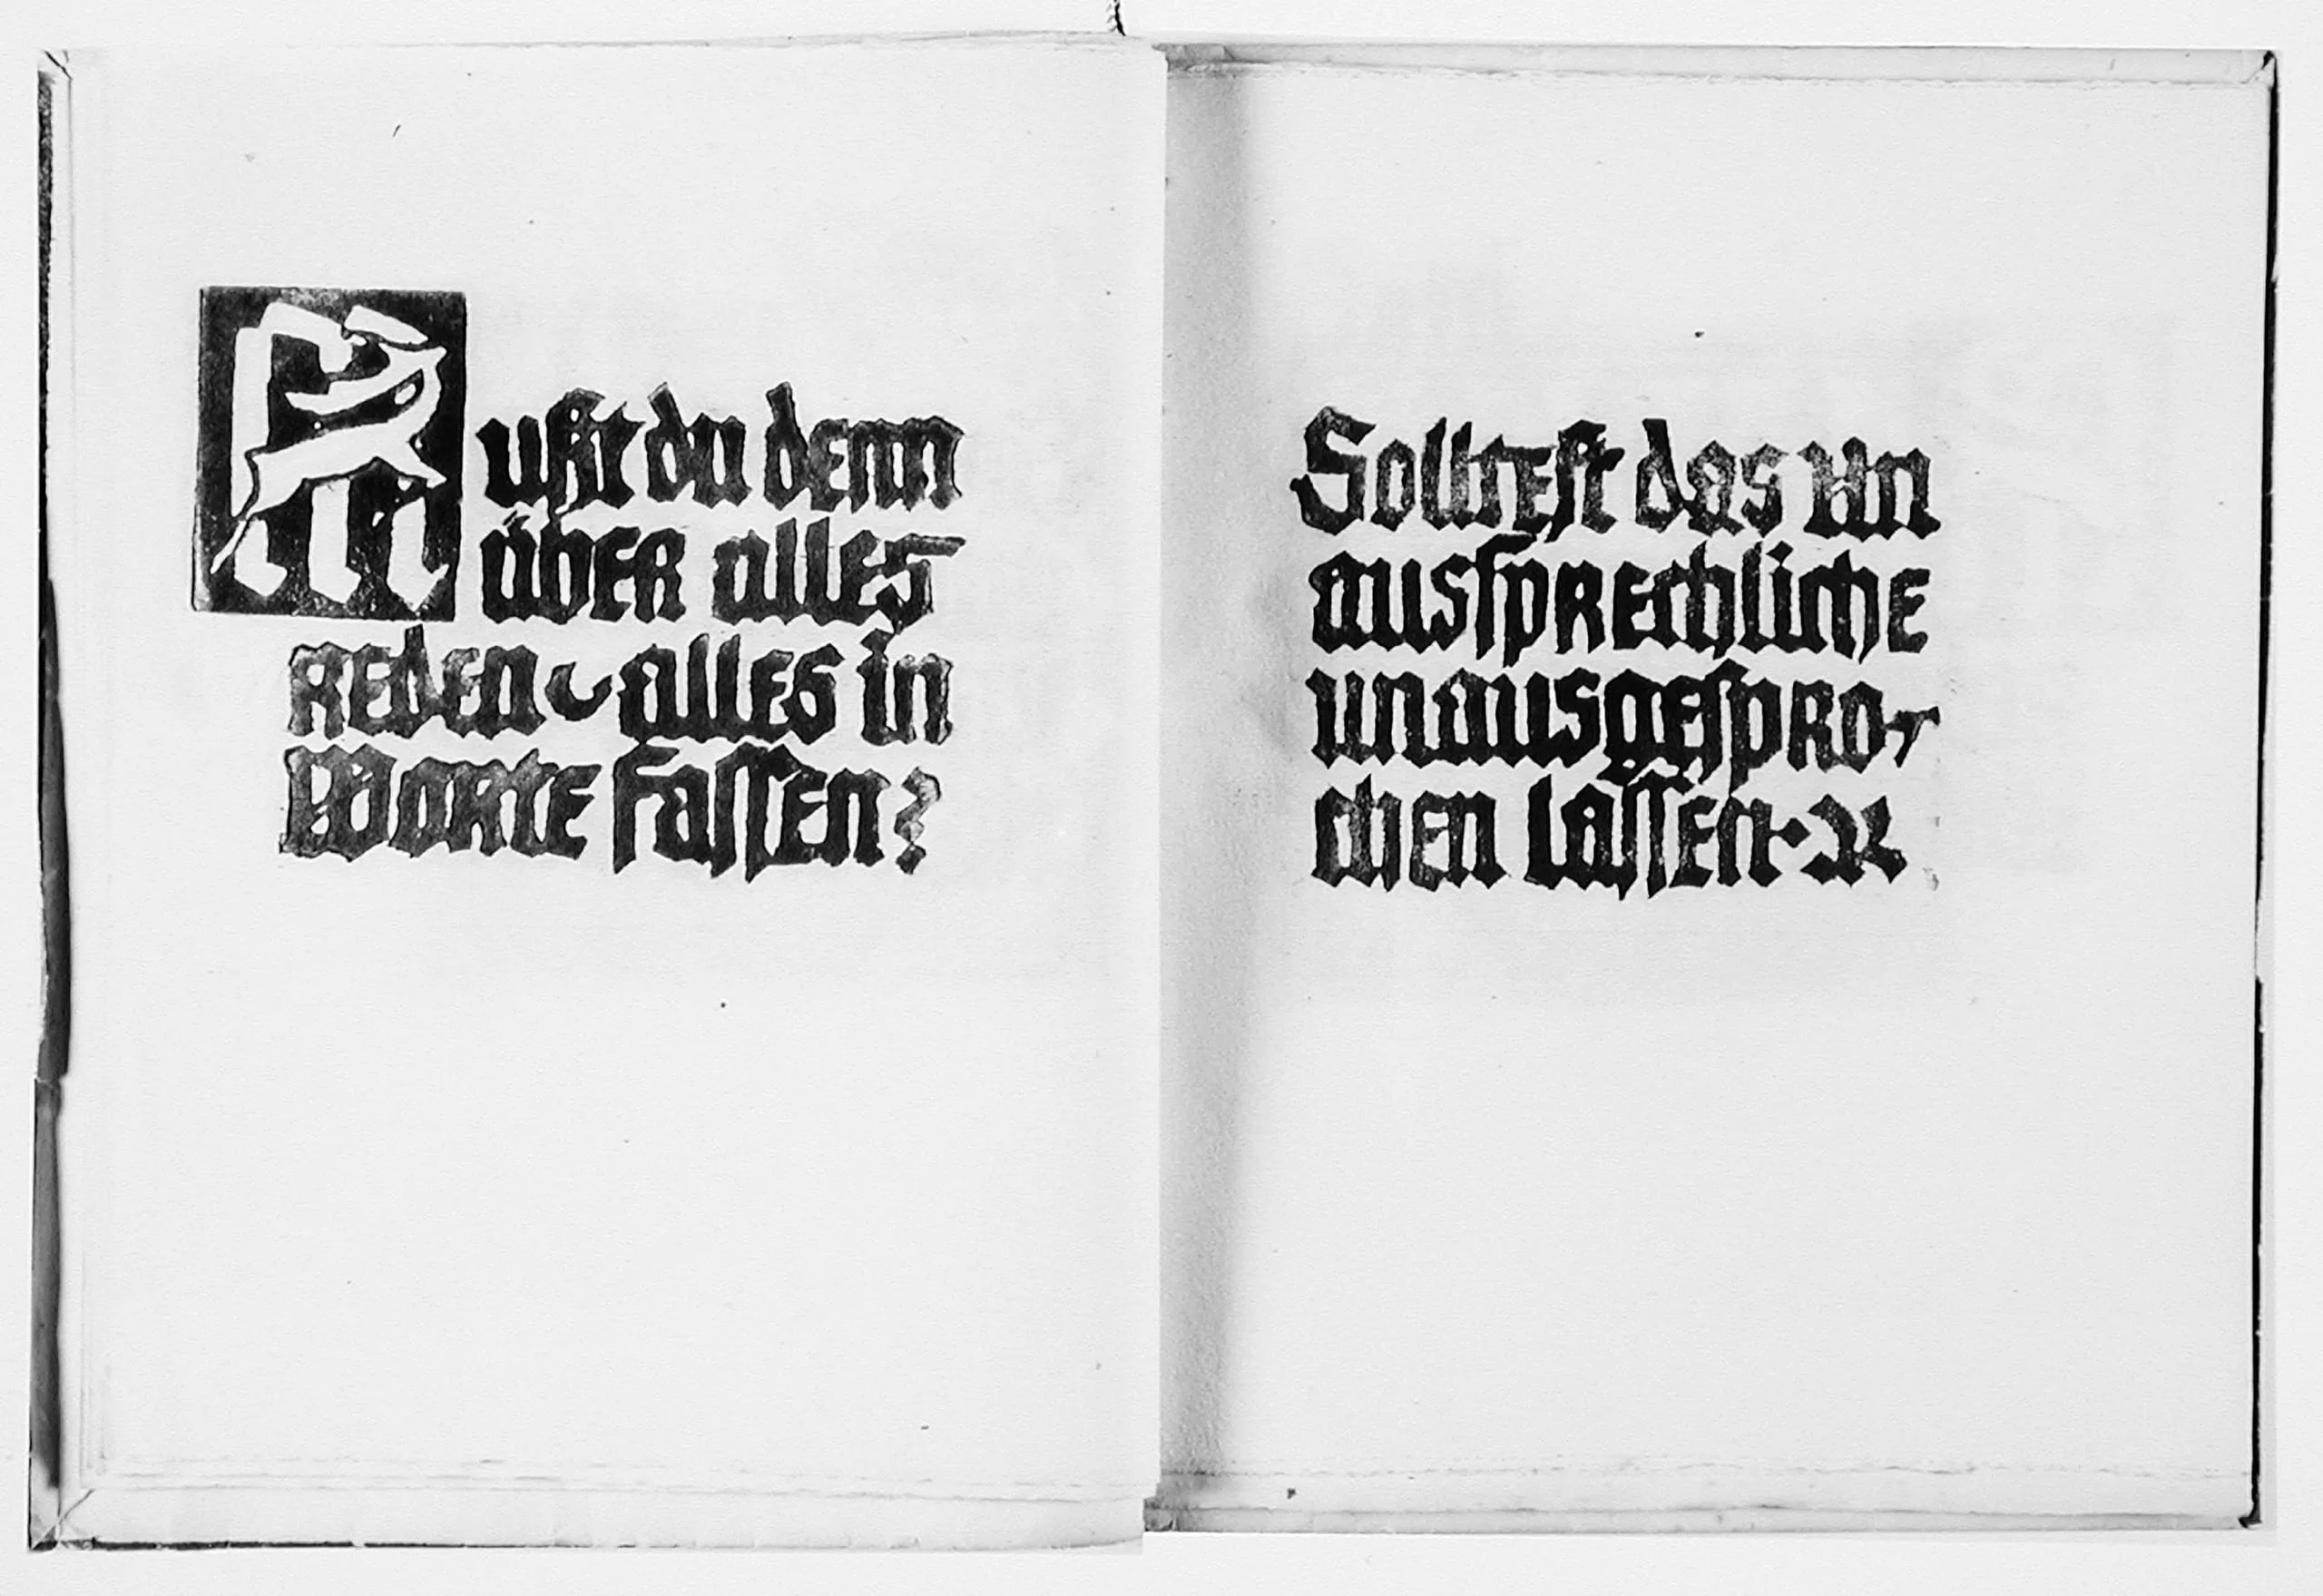 Mußt du denn
über alles
reden, alles in
Worte fassen?
Solltest das Un
aussprechliche
unausgespro-
chen lassen.